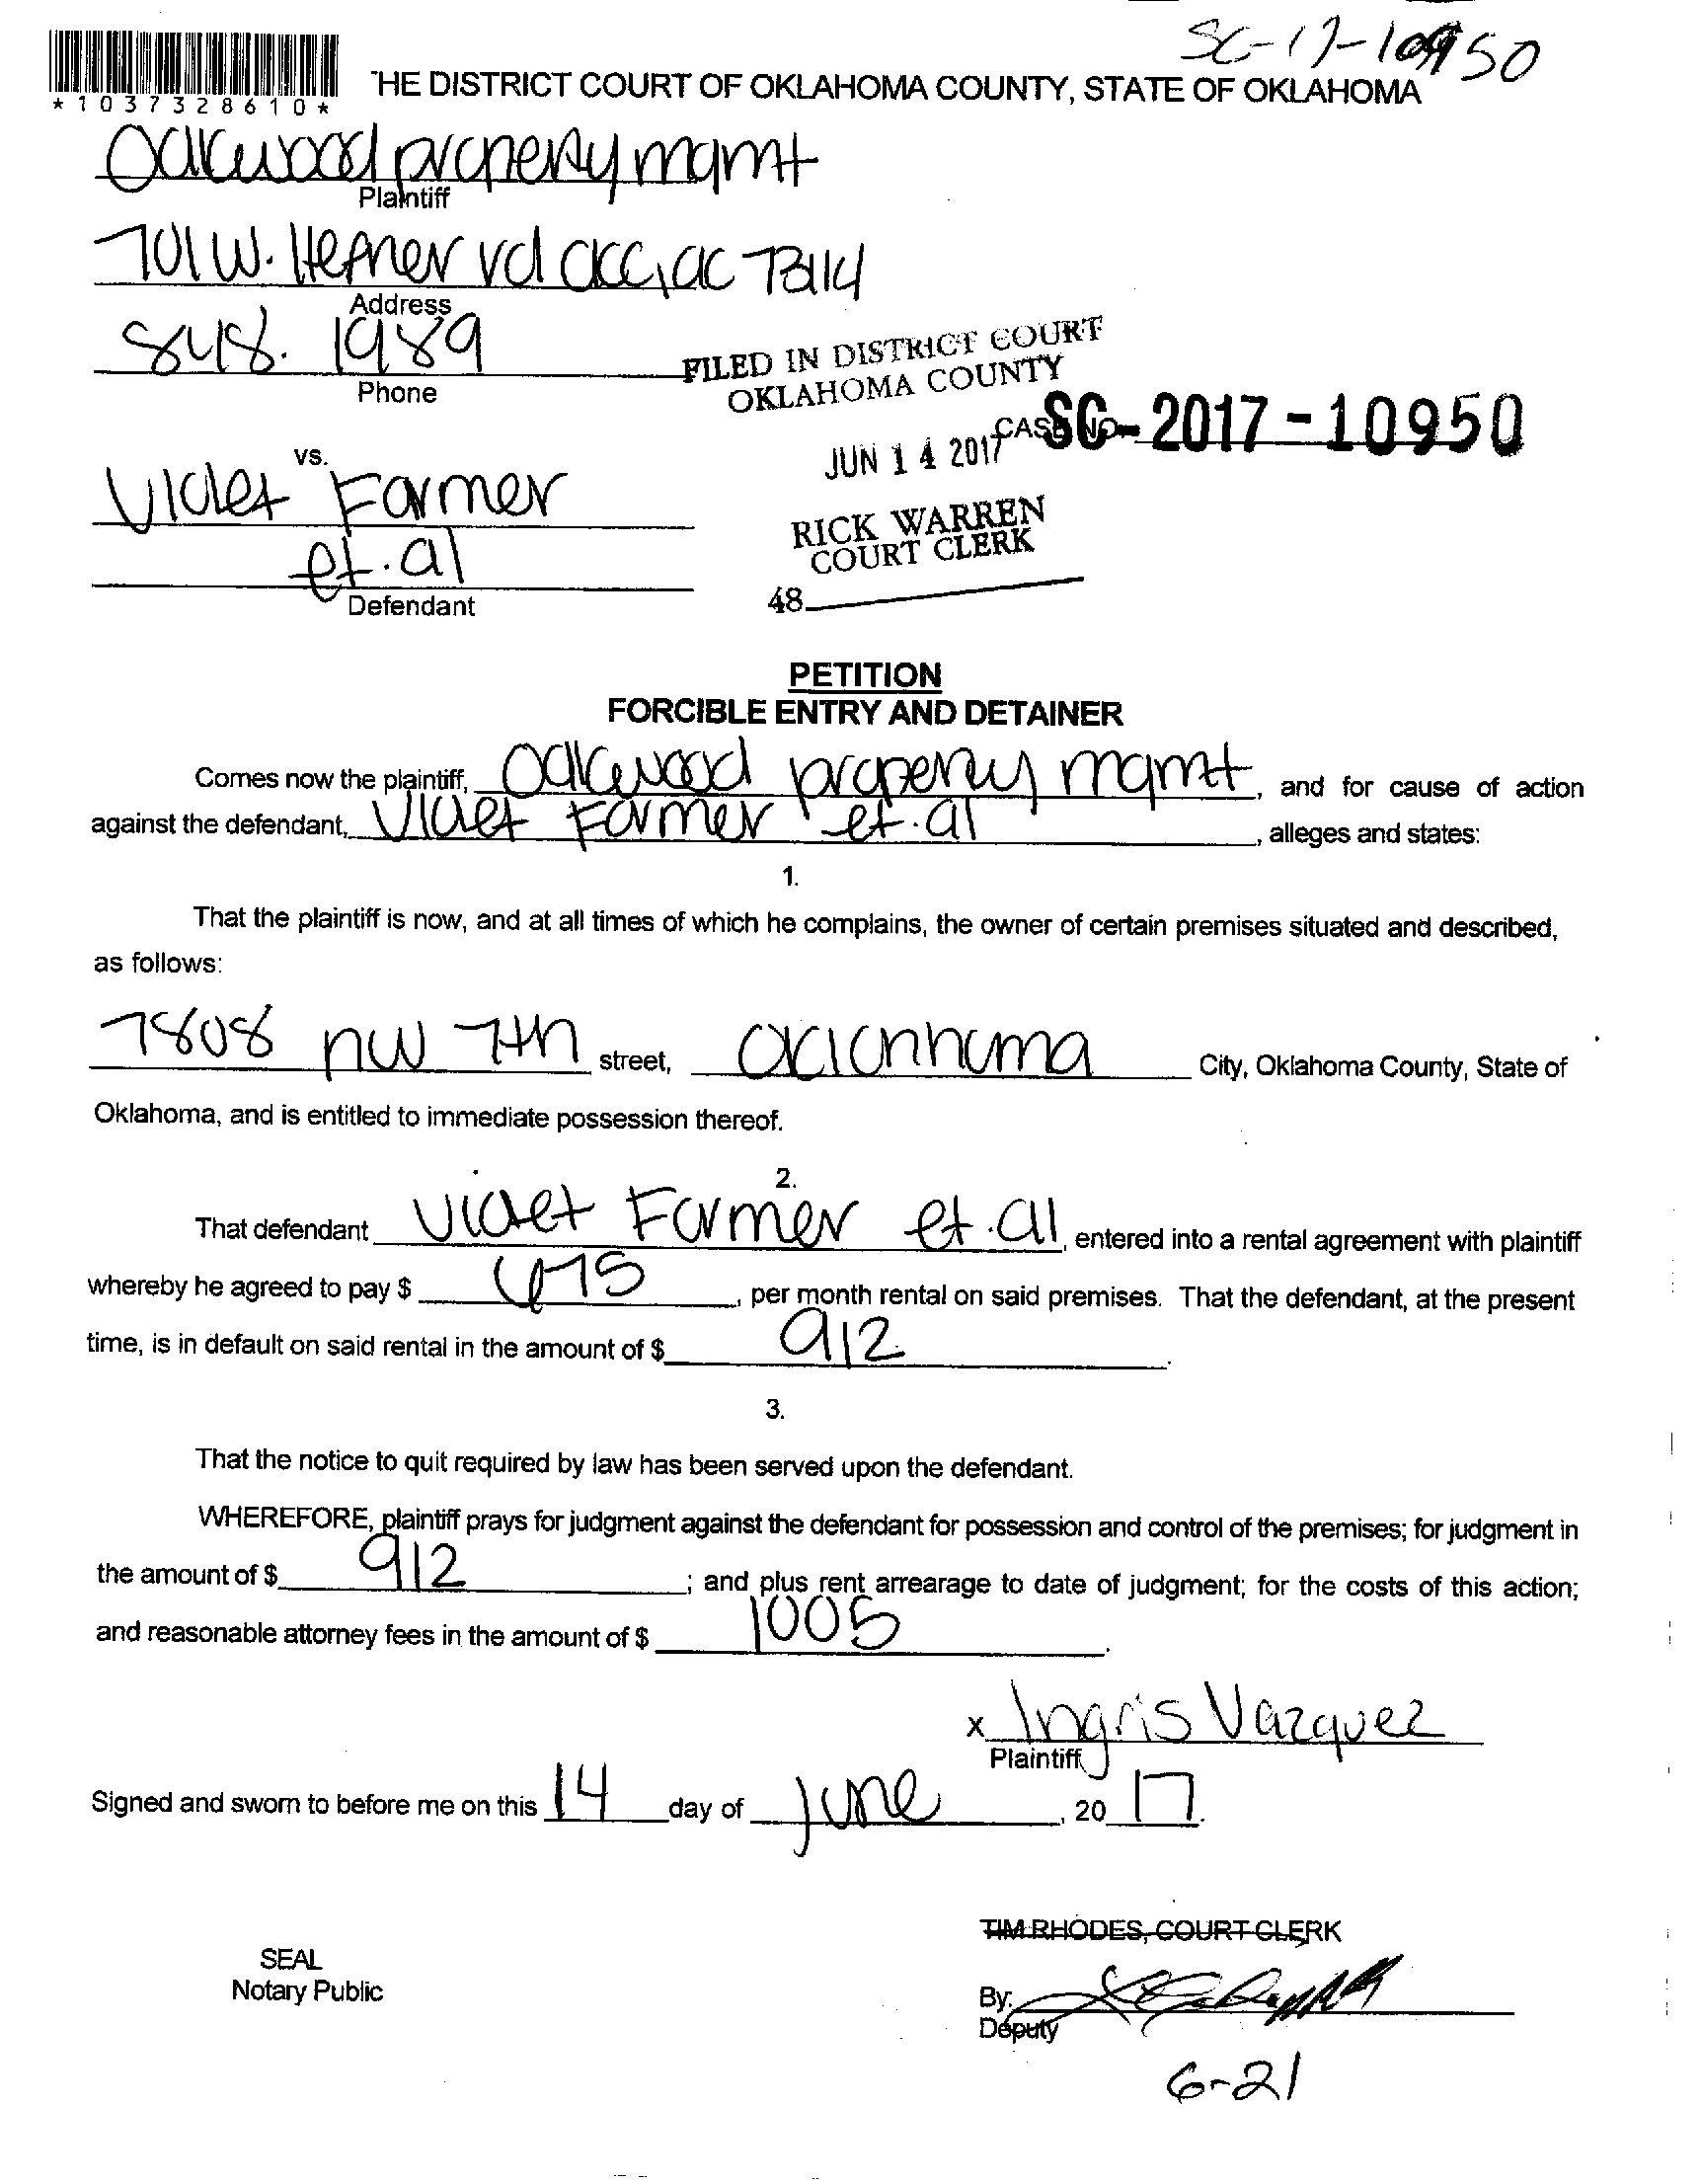 SC-17-10950
*1037328610*
THE DISTRICT COURT OF OKLAHOMA COUNTY, STATE OF OKLAHOMA
Oakwood property mgmt
Plaintiff
701 W. Hefner rd OKC, OK 73114
Address
848. 1989
Phone
FILED IN DISTRICT COURT
OKLAHOMA COUNTY
CASE NO. SC-2017-10950
JUN 14 2017
RICK WARREN
COURT CLERK
48
vs.
Violet Farmer
et.al
Defendant
PETITION
FORCIBLE ENTRY AND DETAINER
Comes now the plaintiff, Oakwood property mgmt, and for cause of action
against the defendant, Violet Farmer et.al, alleges and states:
1.
That the plaintiff is now, and at all times of which he complains, the owner of certain premises situated and described,
as follows:
7808 nw 7th street, Oklahoma City, Oklahoma County, State of
Oklahoma, and is entitled to immediate possession thereof.
2.
That defendant Violet Farmer et.al, entered into a rental agreement with plaintiff
whereby he agreed to pay $ 675, per month rental on said premises. That the defendant, at the present
time, is in default on said rental in the amount of $ 912.
3.
That the notice to quit required by law has been served upon the defendant.
WHEREFORE, plaintiff prays for judgment against the defendant for possession and control of the premises; for judgment in
the amount of $ 912; and plus rent arrearage to date of judgment; for the costs of this action;
and reasonable attorney fees in the amount of $ 1005.
x Ingris Vazquez
Plaintiff
Signed and sworn to before me on this 14 day of June, 20 17.
TIM RHODES, COURT CLERK
SEAL
Notary Public
By:
Deputy
6-21